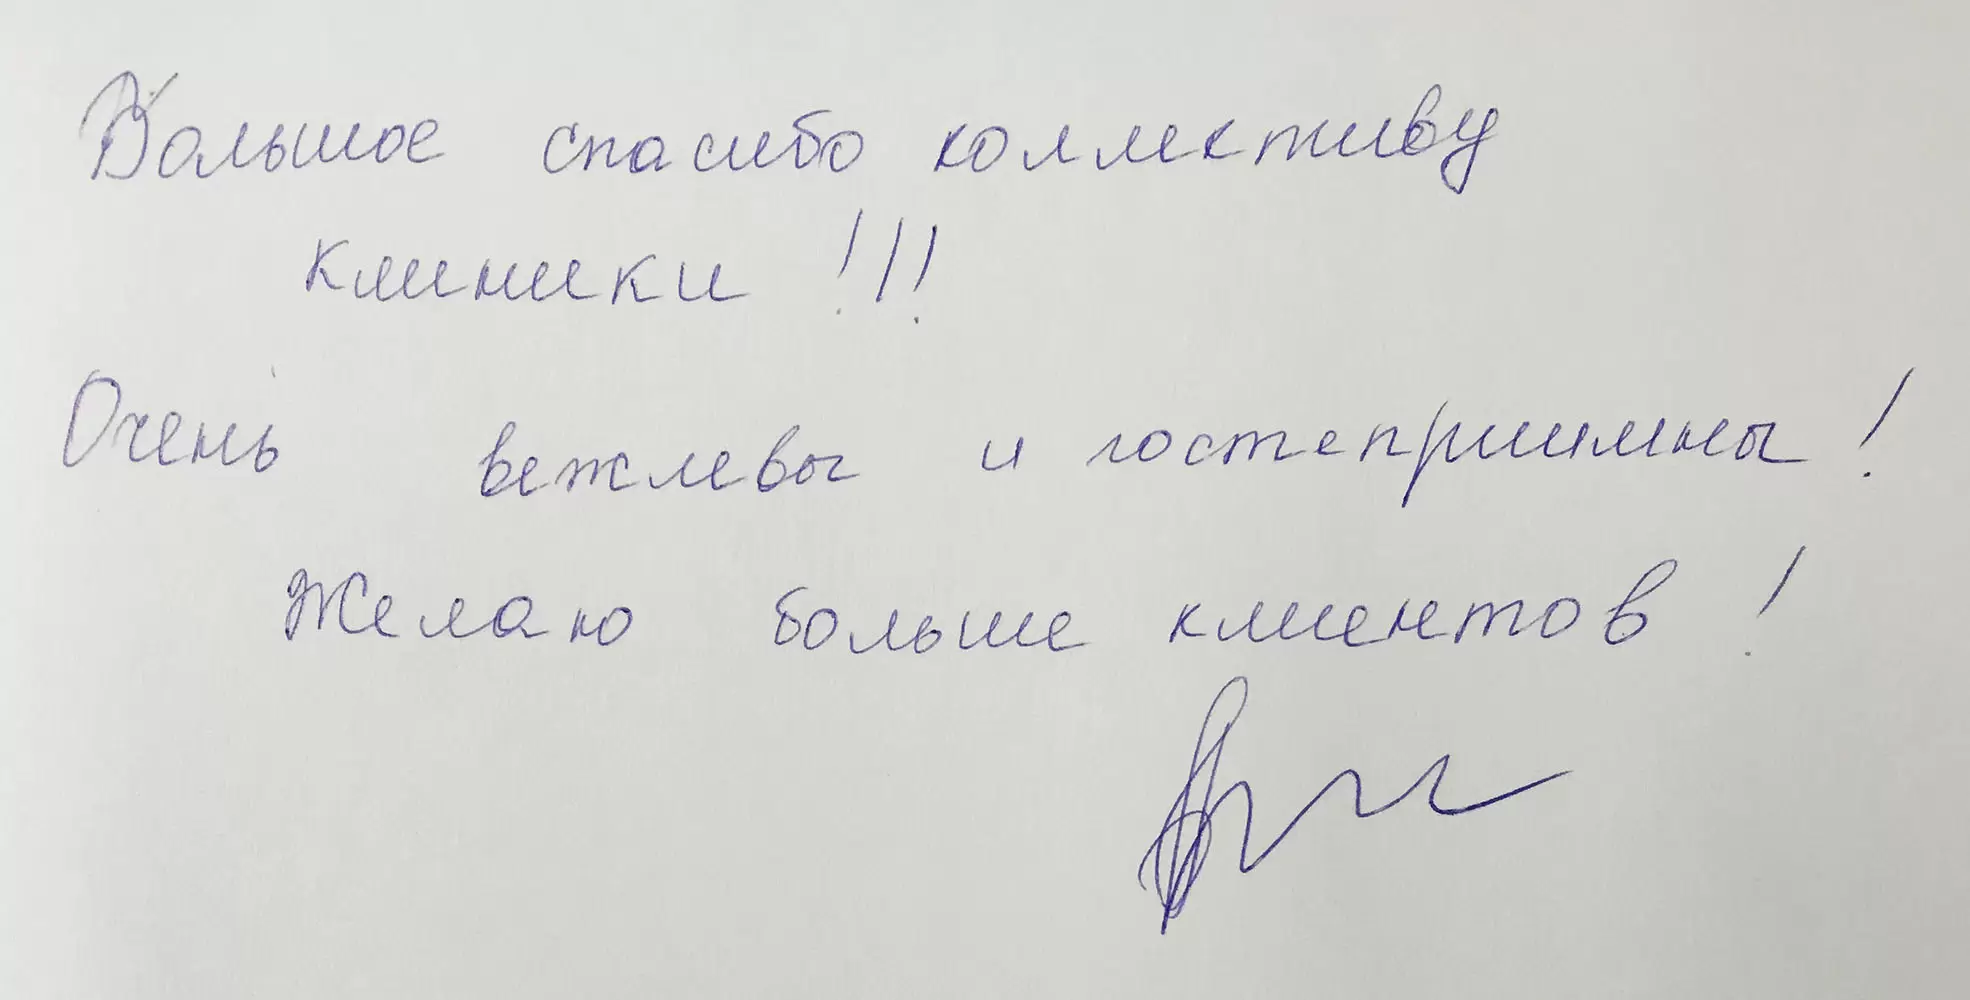 Большое спасибо коллективу
клиники !!!
Очень вежливы и гостеприимны !
Желаю больше клиентов !